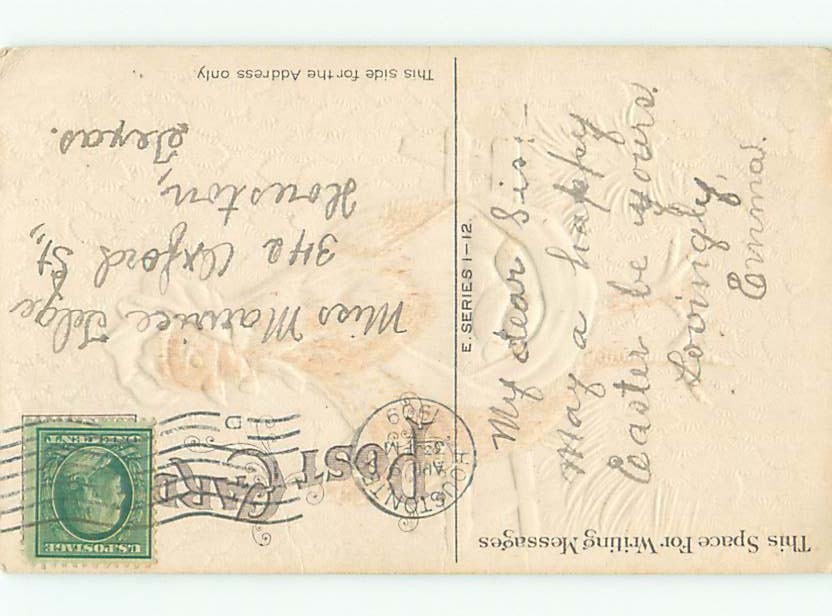 This Space For Writing Messages
My dear Sis:—
May a happy
Easter be yours.
Lovingly,
Emma.
E. SERIES 1-12.
POST CARD
HOUSTON, TEX.
APR 9
1909
D
U.S. POSTAGE
ONE CENT
Miss Maurice Telge
Oxford St.,
Houston,
Texas.
This side for the Address only